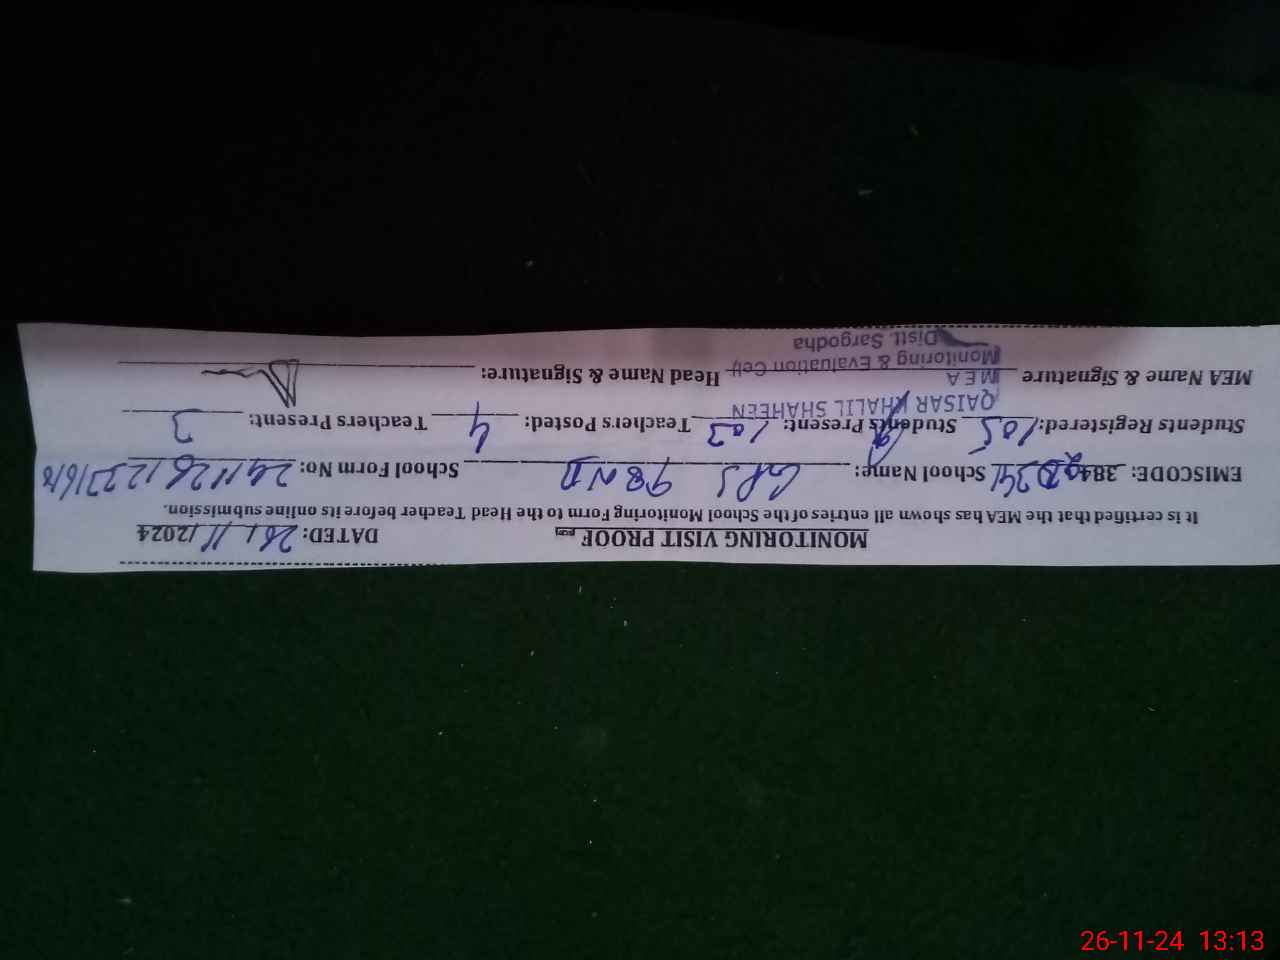 MONITORING VISIT PROOF
DATED: 26/11/2024
It is certified that the MEA has shown all entries of the School Monitoring Form to the Head Teacher before its online submission.
EMISCODE: 384 School Name: GPS 98 NB School Form No:
Students Registered: 105 Students Present: 103 Teachers Posted: 4 Teachers Present: 3
QAISAR KHALIL SHAHEEN
MEA Name & Signature MEA Head Name & Signature:
Monitoring & Evaluation Cell
Distt. Sargodha
26-11-24 13:13